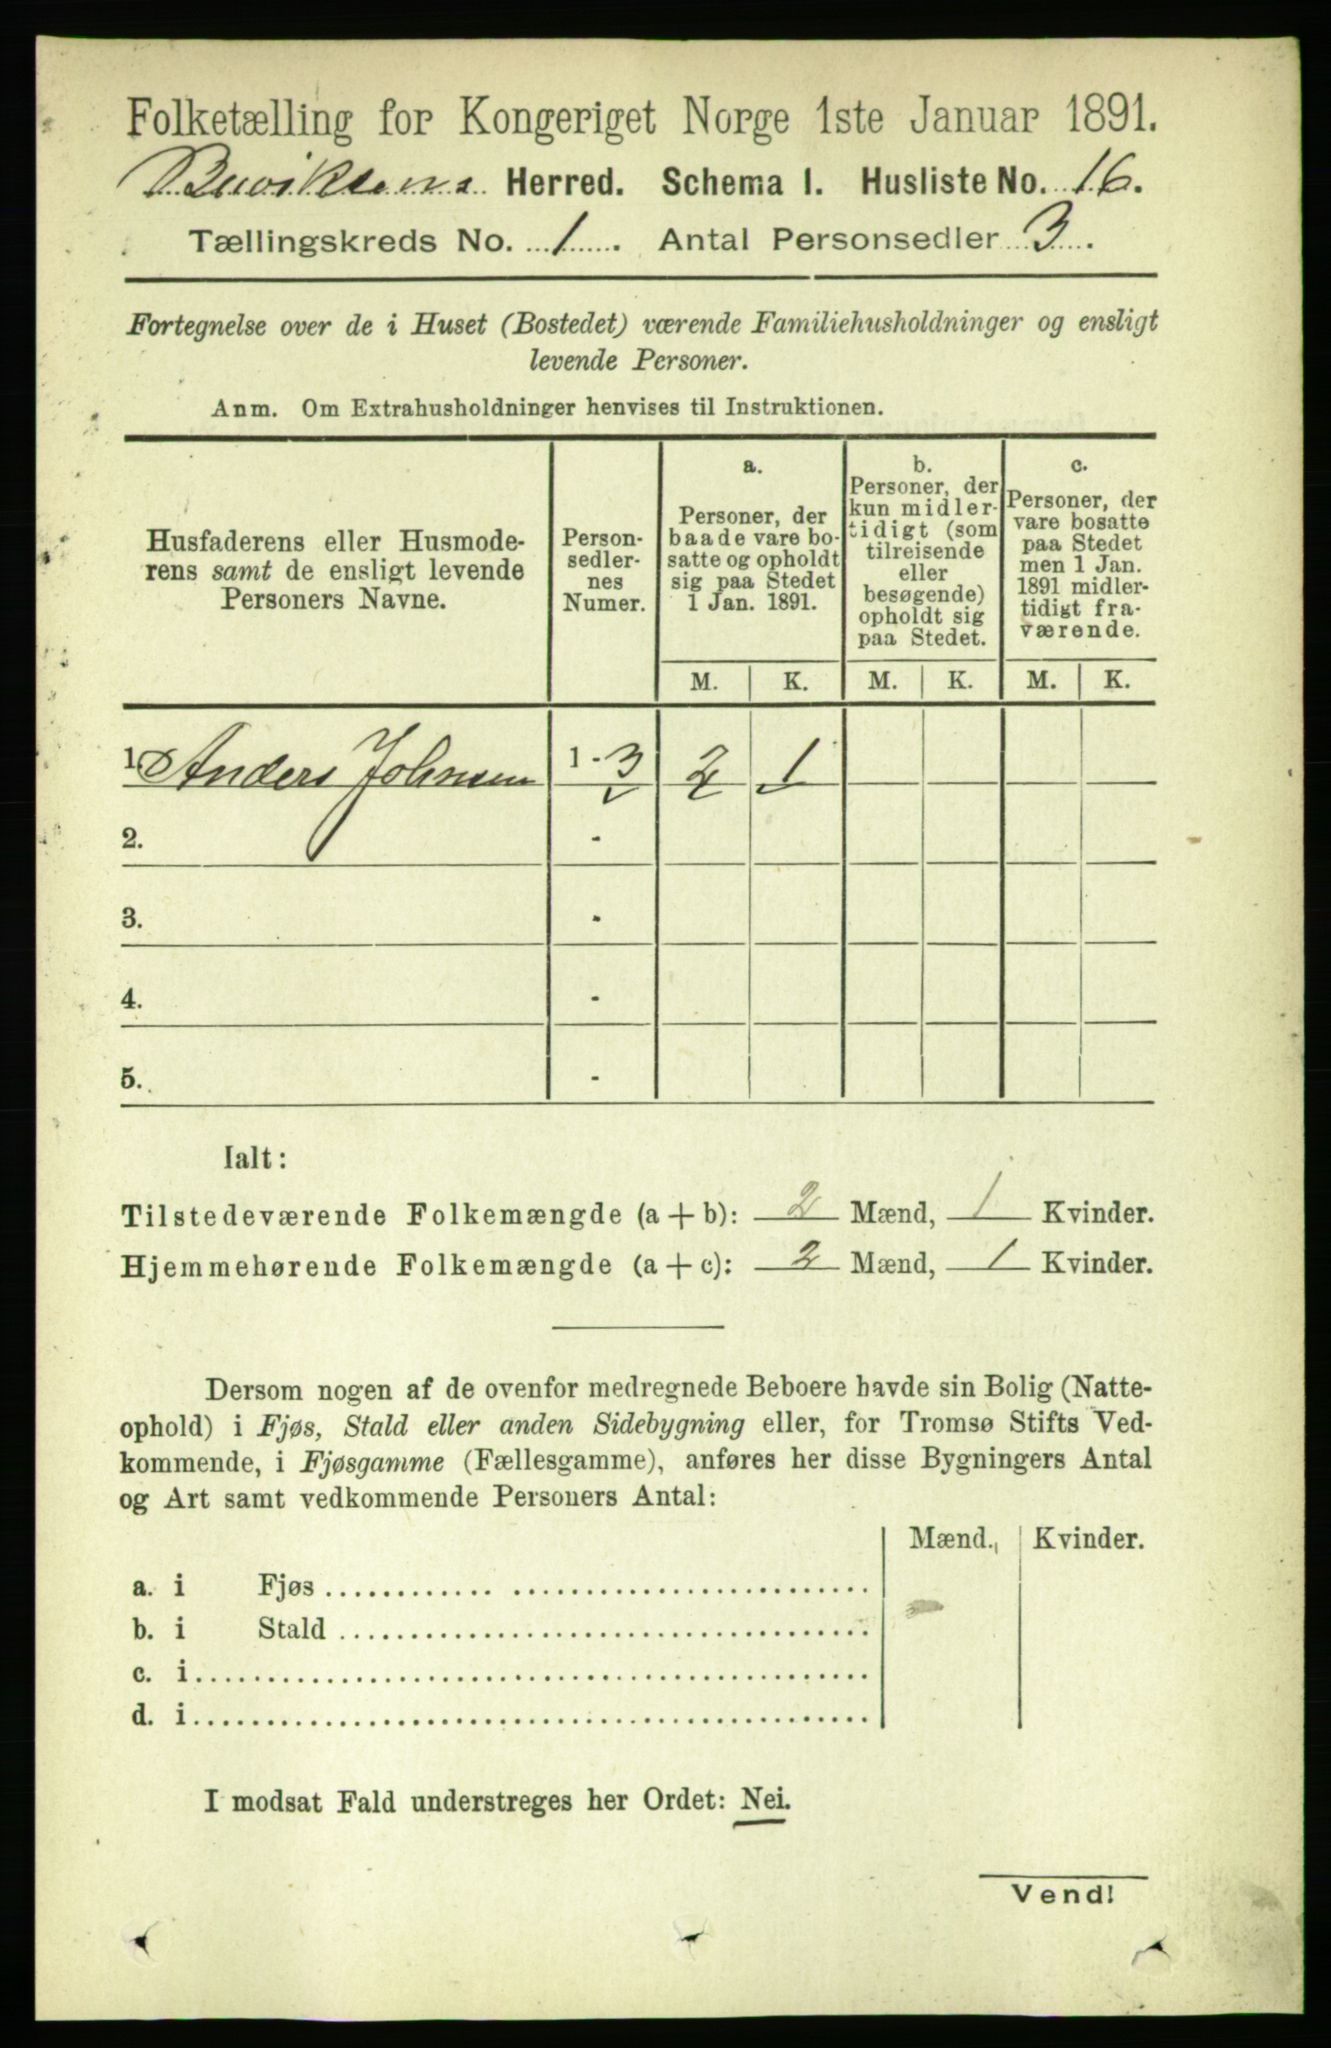 Folketælling for Kongeriget Norge 1ste Januar 1891.
Buvikens Herred. Schema 1. Husliste No. 16.
Tællingskreds No. 1. Antal Personsedler 3.
Fortegnelse over de i Huset (Bostedet) værende Familiehusholdninger og ensligt
levende Personer.
Anm. Om Extrahusholdninger henvises til Instruktionen.
Husfaderens eller Husmode-
rens samt de ensligt levende
Personers Navne.
Person-
sedler-
nes
Numer.
a.
Personer, der
baade vare bo-
satte og opholdt
sig paa Stedet
1 Jan. 1891.
b.
Personer, der
kun midler-
tidigt (som
tilreisende
eller
besøgende)
opholdt sig
paa Stedet.
c.
Personer, der
vare bosatte
paa Stedet
men 1 Jan.
1891 midler-
tidigt fra-
værende.
M. K. M. K. M. K.
1. Anders Johnsen 1 - 3 2 1
2. -
3. -
4. -
5. -
Ialt:
Tilstedeværende Folkemængde (a + b): 2 Mænd, 1 Kvinder.
Hjemmehørende Folkemængde (a + c): 2 Mænd, 1 Kvinder.
Dersom nogen af de ovenfor medregnede Beboere havde sin Bolig (Natte-
ophold) i Fjøs, Stald eller anden Sidebygning eller, for Tromsø Stifts Ved-
kommende, i Fjøsgamme (Fællesgamme), anføres her disse Bygningers Antal
og Art samt vedkommende Personers Antal:
Mænd. Kvinder.
a. i Fjøs
b. i Stald
c. i
d. i
I modsat Fald understreges her Ordet: Nei.
Vend!